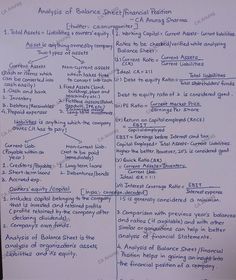 Analysis of Balance Sheet/Financial Position
- CA Anurag Sharma
[twitter: caanuragwriter]
1. Total Assets = Liabilities + owners' equity.
Asset is anything owned by company
Two types of assets
Current assets
Non-current assets
(Cash or items which can be converted into cash easily)
which take time to convert into cash
1. Cash and bank
2. Inventory
3. Debtors/Receivables
4. Prepaid expenses
1. Fixed Assets (land, building, plant and machinery etc)
Liabilities is anything which the company owes (it has to pay)
Current Liab
Non-Current Liab
(Payable within an year)
1. Creditors/Payable
2. Short term loans
3. Accrued exp.
1. Long term loans
2. Debentures/Bonds
Owners' equity/capital
Includes capital belonging to the company that is invested and retained profits (profits retained by the company after declaring dividends).
Company's own funds.
Analysis of Balance Sheet is the analysis of organization's assets, liabilities and its equity.
2. Working Capital = Current Assets - Current Liabilities
Ratios to be checked/verified while analysing Balance Sheet:
(i) Current Ratio = Current Assets
Current Liabilities
Ideal CR = 2:1
(ii) Debt to equity ratio = Total Liabilities
Total shareholders' funds
Debt equity ratio of less than 1 is considered good.
Current Market Price
Earnings Per Share
(iv) Return on Capital employed (ROCE)
EBIT
Capital Employed
EBIT = Earnings before interest and tax
Capital Employed = Total Assets - Current Liabilities
Higher the better. However, 20% is considered good
(v) Quick Ratio (QR)
Current Liab
Ideal QR = 1:1
(vi) Interest Coverage Ratio = EBIT
Interest expense
is generally considered a minimum
3. Comparison with previous year's balances and ratios (if available) and with other similar organizations can help in better analysis of Financial Statements
4. Analysis of Balance Sheet/Financial Position helps in gaining an insight into the financial position of a company.